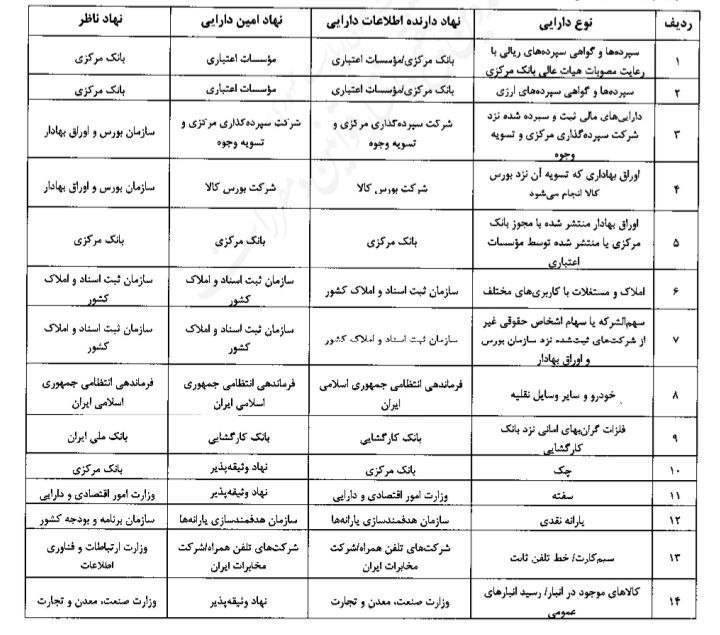 ردیف نوع دارایی نهاد دارنده اطلاعات دارایی نهاد امین دارایی نهاد ناظر
۱ سپرده‌ها و گواهی سپرده‌های ریالی با رعایت مصوبات هیات عالی بانک مرکزی بانک مرکزی/مؤسسات اعتباری مؤسسات اعتباری بانک مرکزی
۲ سپرده‌ها و گواهی سپرده‌های ارزی بانک مرکزی/مؤسسات اعتباری مؤسسات اعتباری بانک مرکزی
۳ دارایی‌های مالی ثبت و سپرده شده نزد شرکت سپرده‌گذاری مرکزی و تسویه وجوه شرکت سپرده‌گذاری مرکزی و تسویه وجوه شرکت سپرده‌گذاری مرکزی و تسویه وجوه سازمان بورس و اوراق بهادار
۴ اوراق بهاداری که تسویه آن نزد بورس کالا انجام می‌شود شرکت بورس کالا شرکت بورس کالا سازمان بورس و اوراق بهادار
۵ اوراق بهادار منتشر شده با مجوز بانک مرکزی یا منتشر شده توسط مؤسسات اعتباری بانک مرکزی بانک مرکزی بانک مرکزی
۶ املاک و مستغلات با کاربری‌های مختلف سازمان ثبت اسناد و املاک کشور سازمان ثبت اسناد و املاک کشور سازمان ثبت اسناد و املاک کشور
۷ سهم‌الشرکه یا سهام اشخاص حقوقی غیر از شرکت‌های ثبت‌شده نزد سازمان بورس و اوراق بهادار سازمان ثبت اسناد و املاک کشور سازمان ثبت اسناد و املاک کشور سازمان ثبت اسناد و املاک کشور
۸ خودرو و سایر وسایل نقلیه فرماندهی انتظامی جمهوری اسلامی ایران فرماندهی انتظامی جمهوری اسلامی ایران فرماندهی انتظامی جمهوری اسلامی ایران
۹ فلزات گران‌بهای امانی نزد بانک کارگشایی بانک کارگشایی بانک کارگشایی بانک ملی ایران
۱۰ چک بانک مرکزی نهاد وثیقه‌پذیر بانک مرکزی
۱۱ سفته وزارت امور اقتصادی و دارایی نهاد وثیقه‌پذیر وزارت امور اقتصادی و دارایی
۱۲ یارانه نقدی سازمان هدفمندسازی یارانه‌ها سازمان هدفمندسازی یارانه‌ها سازمان برنامه و بودجه کشور
۱۳ سیم‌کارت/ خط تلفن ثابت شرکت‌های تلفن همراه/شرکت مخابرات ایران شرکت‌های تلفن همراه/شرکت مخابرات ایران وزارت ارتباطات و فناوری اطلاعات
۱۴ کالاهای موجود در انبار/ رسید انبارهای عمومی وزارت صنعت، معدن و تجارت نهاد وثیقه‌پذیر وزارت صنعت، معدن و تجارت